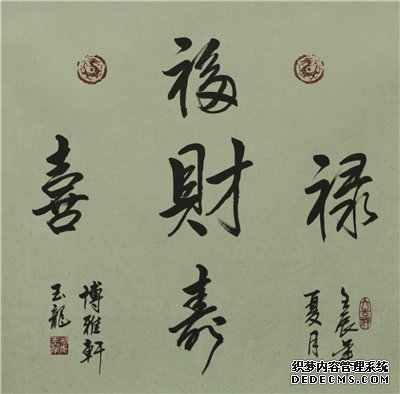 福
禄
財
寿
喜
壬辰年
夏月
博雅軒
玉龍
织梦内容管理系统
DEDECMS.COM